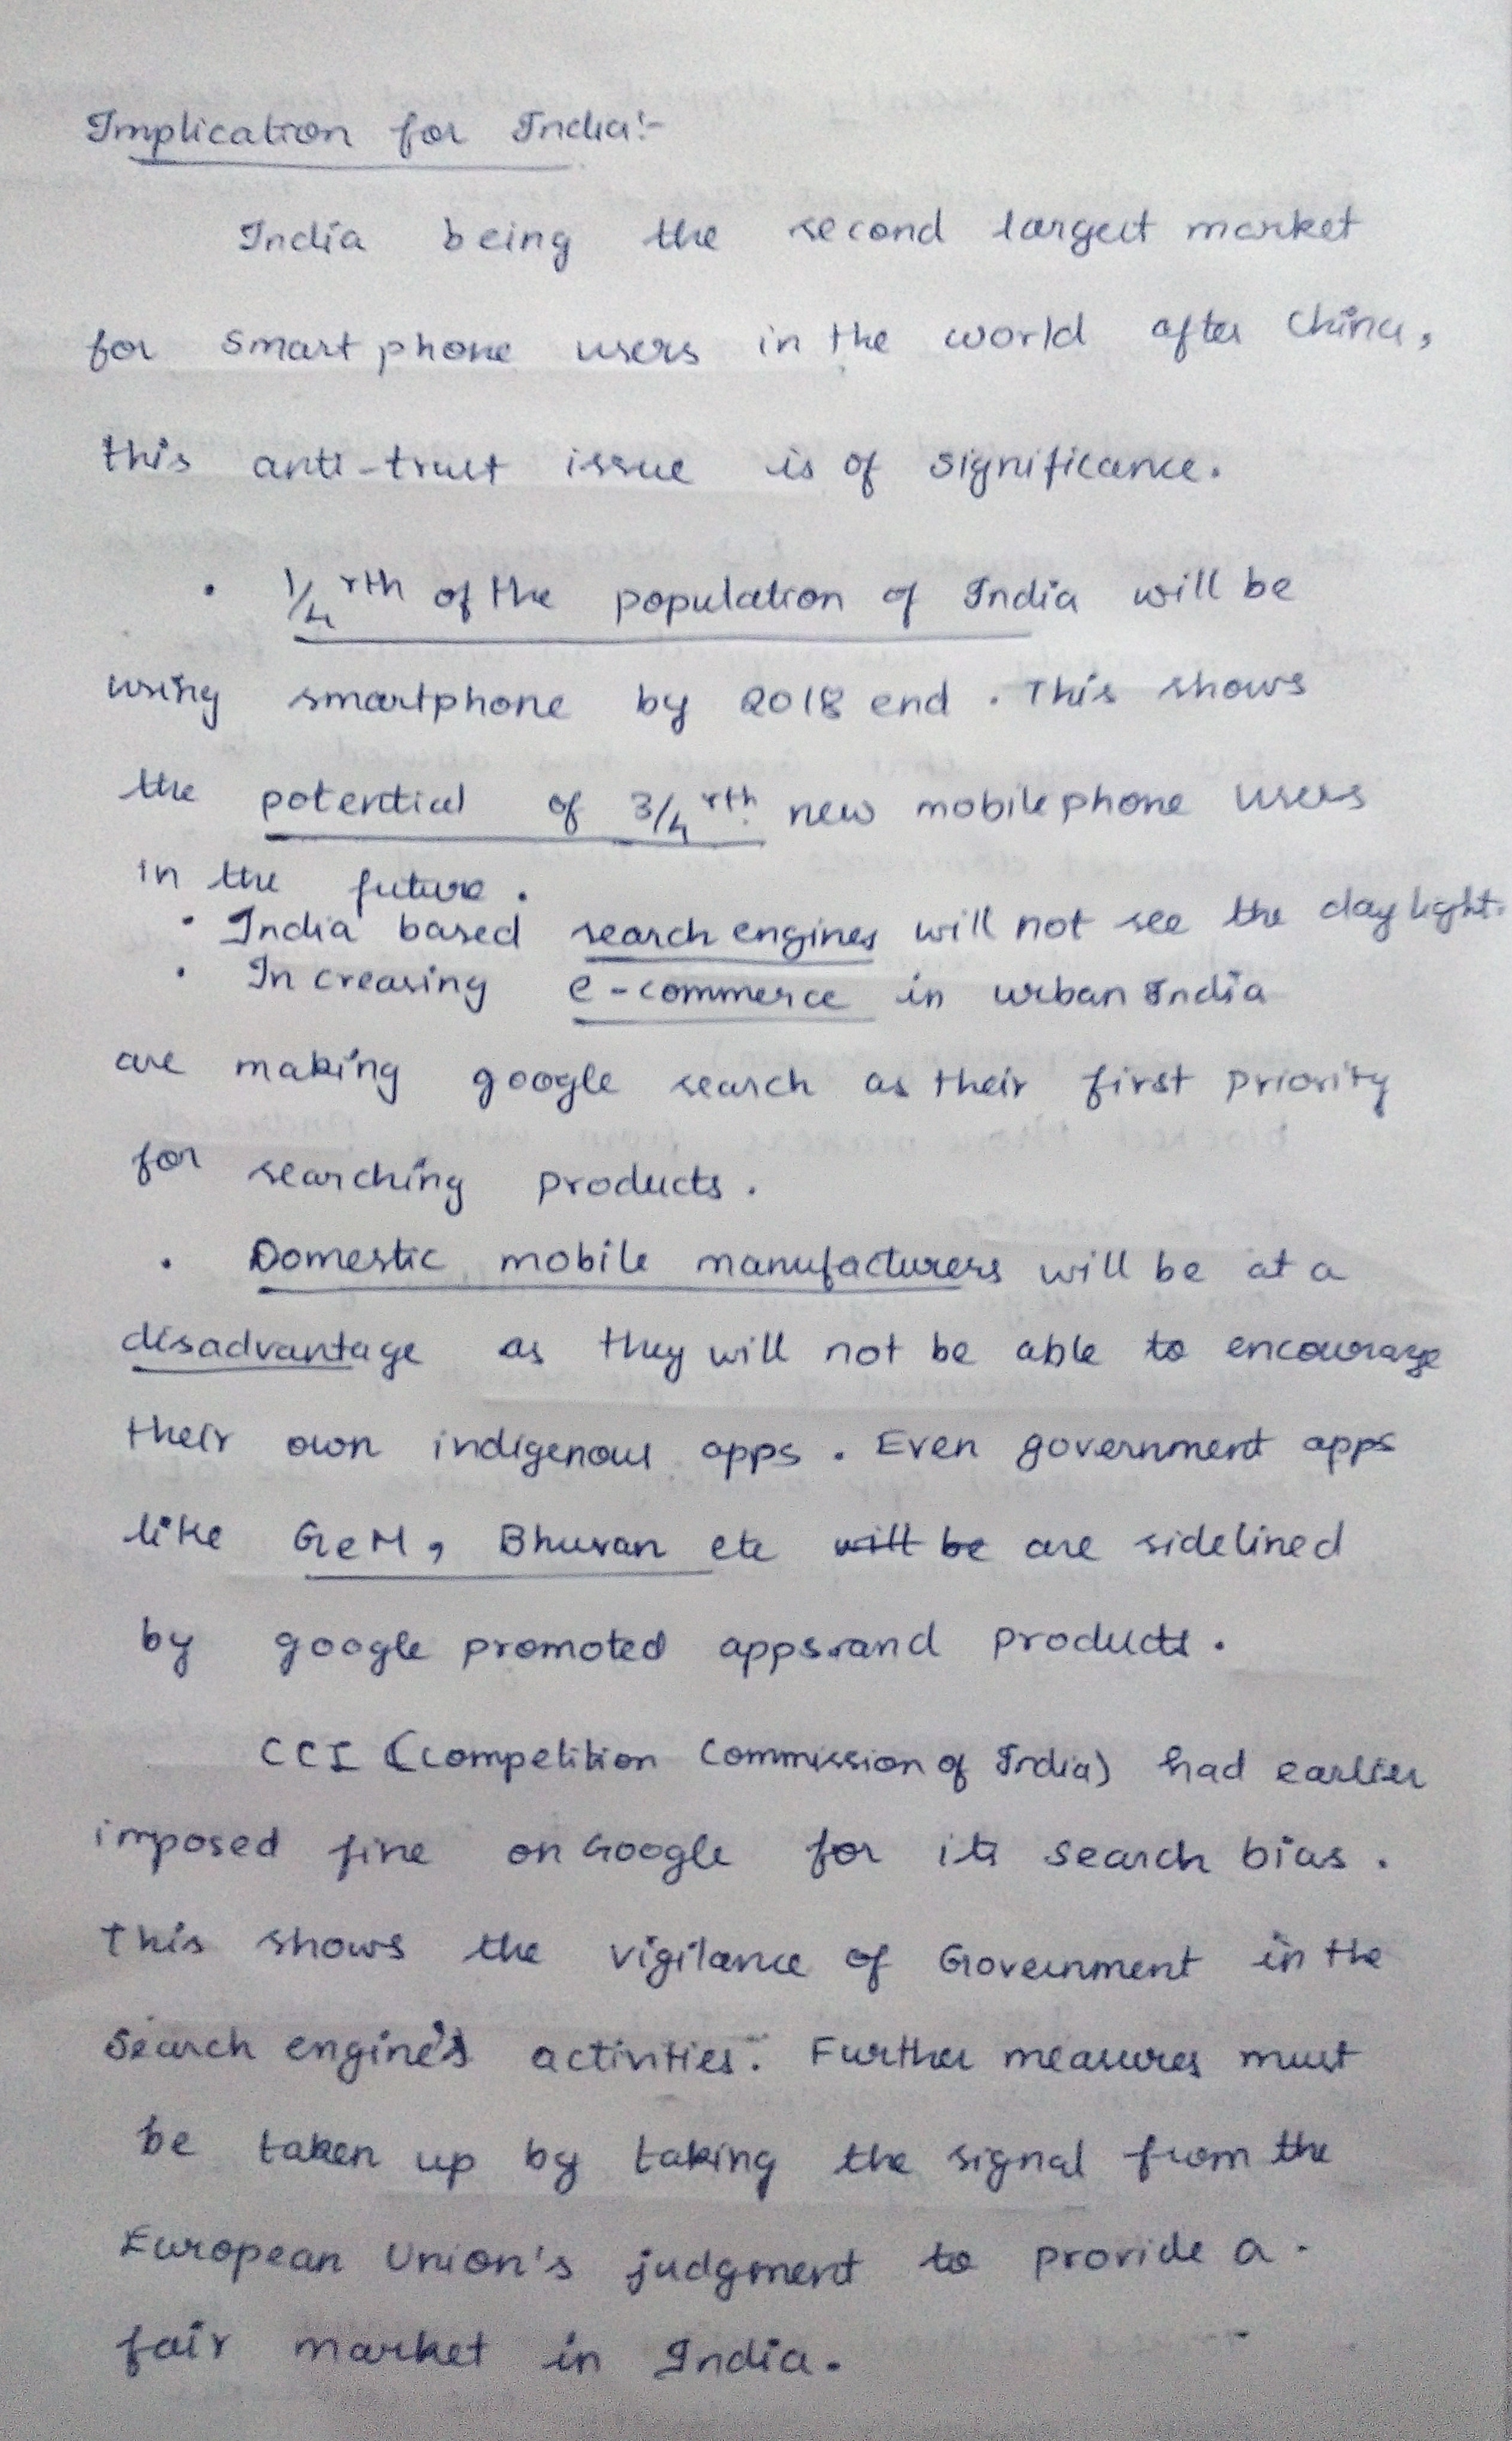 Implication for India:-
India being the second largest market
for smart phone users in the world after China,
this anti-trust issue is of significance.
• 1/4 rth of the population of India will be
using smartphone by 2018 end. This shows
the potential of 3/4 rth new mobile phone users
in the future.
• India based search engines will not see the day light.
• Increasing e-commerce in urban India
are making google search as their first priority
for searching products.
• Domestic mobile manufacturers will be at a
disadvantage as they will not be able to encourage
their own indigenous apps. Even government apps
like GeM, Bhuvan etc will be are sidelined
by google promoted apps and products.
CCI (Competition Commission of India) had earlier
imposed fine on Google for its search bias.
This shows the vigilance of Government in the
Search engine's activities. Further measures must
be taken up by taking the signal from the
European Union's judgment to provide a
fair market in India.